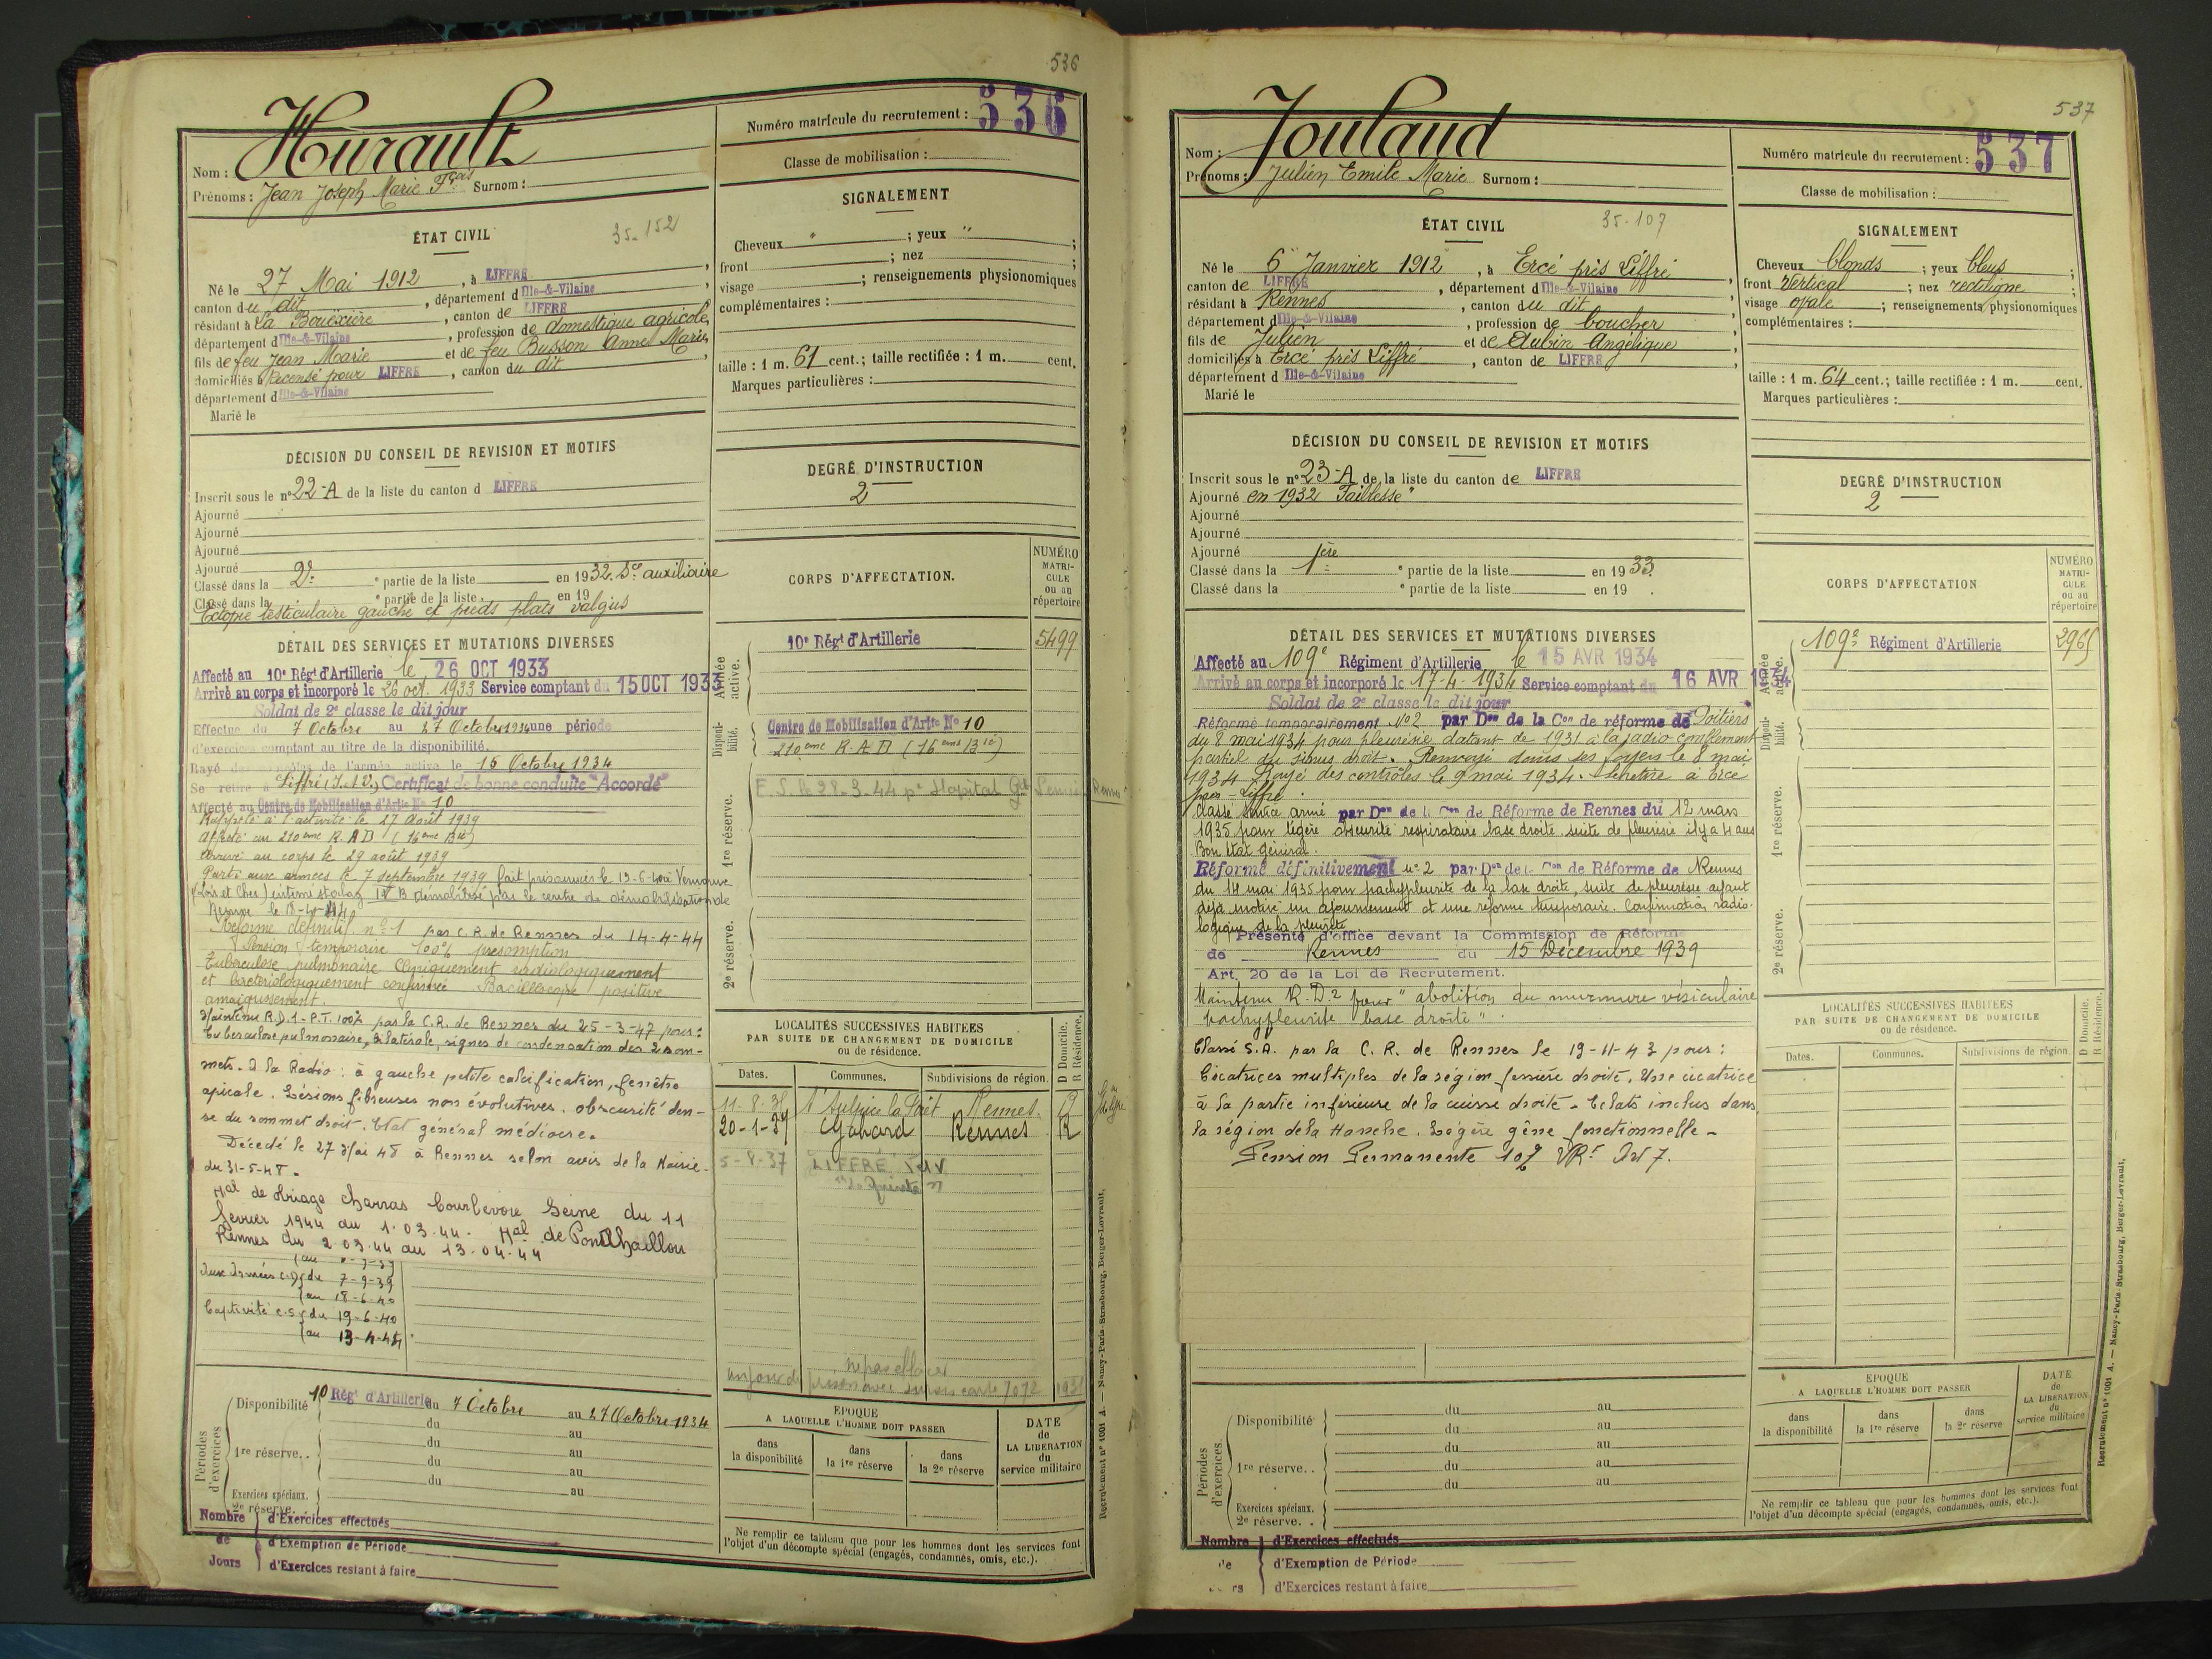 536
Nom : Hurault
Prénoms : Jean Joseph Marie Fçois Surnom :
Numéro matricule du recrutement : 536
Classe de mobilisation :
ÉTAT CIVIL
35-152
Né le 27 Mai 1912, à LIFFRÉ,
canton du dit, département d'Ille-&-Vilaine,
résidant à La Bouëxière, canton de LIFFRÉ,
département d'Ille-&-Vilaine, profession de domestique agricole,
fils de feu Jean Marie et de feu Busson Anne Marie,
domiciliés à Recensé pour LIFFRÉ, canton du dit,
département d'Ille-&-Vilaine
Marié le
SIGNALEMENT
Cheveux " ; yeux " ;
front ; nez ;
visage ; renseignements physionomiques
complémentaires :
taille : 1 m. 61 cent.; taille rectifiée : 1 m. cent.
Marques particulières :
DÉCISION DU CONSEIL DE REVISION ET MOTIFS
Inscrit sous le n° 22-A de la liste du canton d LIFFRÉ
Ajourné
Ajourné
Ajourné
Ajourné
Classé dans la 2e ° partie de la liste en 1932. Sce auxiliaire
Classé dans la ° partie de la liste. en 19
Ectopie testiculaire gauche et pieds plats valgus
DEGRÉ D'INSTRUCTION
2
CORPS D'AFFECTATION.
NUMÉRO MATRICULE ou au répertoire
Armée active.
10e Régt d'Artillerie 5499
Disponibilité.
Centre de Mobilisation d'Artie No 10
210eme R.A.D (16eme Bie)
1re réserve.
E.S. le 28-3-44 pr Hopital Gal Rennes
2e réserve.
DÉTAIL DES SERVICES ET MUTATIONS DIVERSES
Affecté au 10e Régt d'Artillerie le 26 OCT 1933
Arrivé au corps et incorporé le 26 oct. 1933 Service comptant du 15 OCT 1933
Soldat de 2e classe le dit jour
Effectue du 7 Octobre au 27 Octobre 1934 une période
d'exercice comptant au titre de la disponibilité.
Rayé des contrôles de l'armée active le 15 Octobre 1934
Se retire à Liffré (I.&V.) Certificat de bonne conduite "Accordé"
Affecté au Centre de Mobilisation d'Artie No 10
Rappelé à l'activité le 27 Août 1939
Affecté au 210eme R.A.D (16eme Bie)
Arrivé au corps le 29 août 1939
Parti aux armées le 7 septembre 1939 fait prisonnier le 19-6-40 à
(Loir et Cher) interné stalag IV B démobilisé par le centre de démobilisation de
Rennes le
Réforme définitif n° 1 par C.R. de Rennes du 14-4-44
Pension temporaire 100% présomption
Tuberculose pulmonaire cliniquement radiologiquement
et bactériologiquement confirmée Bacilloscopie positive
amaigrissement.
Maintenu R.D.1 - P.T. 100% par la C.R. de Rennes du 25-3-47 pour :
Tuberculose pulmonaire, bilatérale, signes de condensation des 2 som-
mets. A la Radio : à gauche petite calcification, fenêtre
apicale. Lésions fibreuses non évolutives. obscurité den-
se du sommet droit. Etat général médiocre.
Décédé le 27 Mai 48 à Rennes selon avis de la Mairie
du 31-5-48.
Hal de triage Charras Courbevoie Seine du 11
fevrier 1944 au 1.03.44. Hal de Pontchaillou
Rennes du 2.03.44 au 13.04.44
Aux Armées C.D du 7-9-39
au 18-6-40
Captivité C.S du 19-6-40
au 13-4-44
LOCALITÉS SUCCESSIVES HABITÉES
PAR SUITE DE CHANGEMENT DE DOMICILE
ou de résidence.
D Domicile. R Résidence.
Dates. Communes. Subdivisions de région.
11-8-35 St Sulpice la Forêt Rennes. D
20-1-37 Gahard Rennes R
5-8-37 LIFFRÉ I&V
ne pas effacer
un jour de prison avec sursis carte 7072 193
Périodes d'exercices
Disponibilité 10 Régt d'Artillerie du 7 Octobre au 27 Octobre 1934
du au
1re réserve.. du au
du au
du au
Exercices spéciaux.
2e réserve.
Nombre de Jours
d'Exercices effectués
d'Exemption de Période
d'Exercices restant à faire
ÉPOQUE
A LAQUELLE L'HOMME DOIT PASSER
dans la disponibilité
dans la 1re réserve
dans la 2e réserve
DATE de LA LIBÉRATION du service militaire
Ne remplir ce tableau que pour les hommes dont les services font
l'objet d'un décompte spécial (engagés, condamnés, omis, etc.).
Recrutement n° 1001 A. — Nancy-Paris-Strasbourg, Berger-Levrault.
537
Nom : Joulaud
Prénoms : Julien Emile Marie Surnom :
Numéro matricule du recrutement : 537
Classe de mobilisation :
ÉTAT CIVIL
35-107
Né le 6 Janvier 1912, à Ercé près Liffré,
canton de LIFFRÉ, département d'Ille-&-Vilaine,
résidant à Rennes, canton du dit,
département d'Ille-&-Vilaine, profession de boucher,
fils de Julien et de Aubin Angélique,
domiciliés à Ercé près Liffré, canton de LIFFRÉ,
département d Ille-&-Vilaine
Marié le
SIGNALEMENT
Cheveux blonds ; yeux bleus ;
front Vertical ; nez rectiligne ;
visage ovale ; renseignements physionomiques
complémentaires :
taille : 1 m. 64 cent.; taille rectifiée : 1 m. cent.
Marques particulières :
DÉCISION DU CONSEIL DE REVISION ET MOTIFS
Inscrit sous le n° 23-A de la liste du canton de LIFFRÉ
Ajourné en 1932 Faiblesse"
Ajourné
Ajourné
Ajourné
Classé dans la 1ère ° partie de la liste en 1933.
Classé dans la ° partie de la liste en 19 .
DEGRÉ D'INSTRUCTION
2
CORPS D'AFFECTATION
NUMÉRO MATRICULE ou au répertoire
Armée active.
109e Régiment d'Artillerie 2965
Disponibilité.
1re réserve.
2e réserve.
DÉTAIL DES SERVICES ET MUTATIONS DIVERSES
Affecté au 109e Régiment d'Artillerie le 15 AVR 1934
Arrivé au corps et incorporé le 17-4-1934 Service comptant du 16 AVR 1934
Soldat de 2e classe le dit jour
Réformé temporairement No2 par Don de la Con de réforme de Poitiers
du 8 mai 1934 pour pleurésie datant de 1931 à la radio comblement
partiel du sinus droit. Renvoyé dans ses foyers le 8 mai
1934 Rayé des contrôles le 9 mai 1934. Se retire à Ercé
près Liffré.
Classé service armé par Don de la Con de Réforme de Rennes du 12 mars
1935 pour légère obscurité respiratoire base droite, suite de pleurésie il y a 4 ans
Bon état général.
Réformé définitivement n°2 par Don de la Con de Réforme de Rennes
du 14 mai 1935 pour pachypleurite de la base droite, suite de pleurésie ayant
déjà motivé un ajournement et une réforme temporaire. Confirmation radio-
logique de la pleurite
Présenté d'office devant la Commission de Réforme
de Rennes du 15 Décembre 1939
Art. 20 de la Loi de Recrutement.
Maintenu R.D.2 pour "abolition du murmure vésiculaire
pachypleurite base droite".
Classé S.A. par la C.R. de Rennes le 19-11-43 pour :
Cicatrices multiples de la région fessière droite. Une cicatrice
à la partie inférieure de la cuisse droite - Eclats inclus dans
la région de la Hanche. Légère gêne fonctionnelle -
Pension Permanente 10%
LOCALITÉS SUCCESSIVES HABITÉES
PAR SUITE DE CHANGEMENT DE DOMICILE
ou de résidence.
D Domicile. R Résidence.
Dates. Communes. Subdivisions de région.
Périodes d'exercices
Disponibilité du au
du au
1re réserve.. du au
du au
du au
Exercices spéciaux.
2e réserve..
Nombre de Jours
d'Exercices effectués
d'Exemption de Période
d'Exercices restant à faire
ÉPOQUE
A LAQUELLE L'HOMME DOIT PASSER
dans la disponibilité
dans la 1re réserve
dans la 2e réserve
DATE de LA LIBÉRATION du service militaire
Ne remplir ce tableau que pour les hommes dont les services font
l'objet d'un décompte spécial (engagés, condamnés, omis, etc.).
Recrutement n° 1001 A. — Nancy-Paris-Strasbourg, Berger-Levrault.